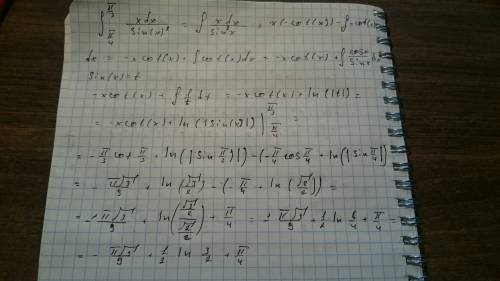 ∫_{π/4}^{π/3} x dx / Sin(x)² = ∫ x dx / Sin²x = x(-cot(x)) - ∫ -cot(x)
dx = -x cot(x) + ∫ cot(x) dx = -x cot(x) + ∫ cosx / Sinx dx
Sin(x) = t
-x cot(x) + ∫ 1/t dt = -x cot(x) + ln(|t|) =
= -x cot(x) + ln(|Sin(x)|) |_{π/4}^{π/3} =
= -π/3 cot π/3 + ln(|Sin π/3|) - (-π/4 cos π/4 + ln(|Sin π/4|)
= -π√3/9 + ln(√3/2) - (-π/4 + ln(√2/2)) =
= -π√3/9 + ln((√3/2)/(√2/2)) + π/4 = -π√3/9 + 1/2 ln 6/4 + π/4 =
= -π√3/9 + 1/2 ln 3/2 + π/4